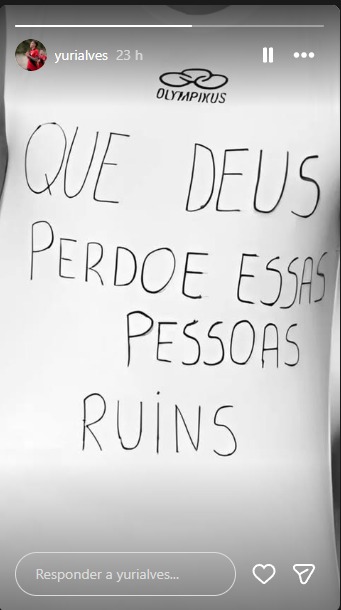 yurialves 23 h
OLYMPIKUS
QUE DEUS
PERDOE ESSAS
PESSOAS
RUINS
Responder a yurialves...